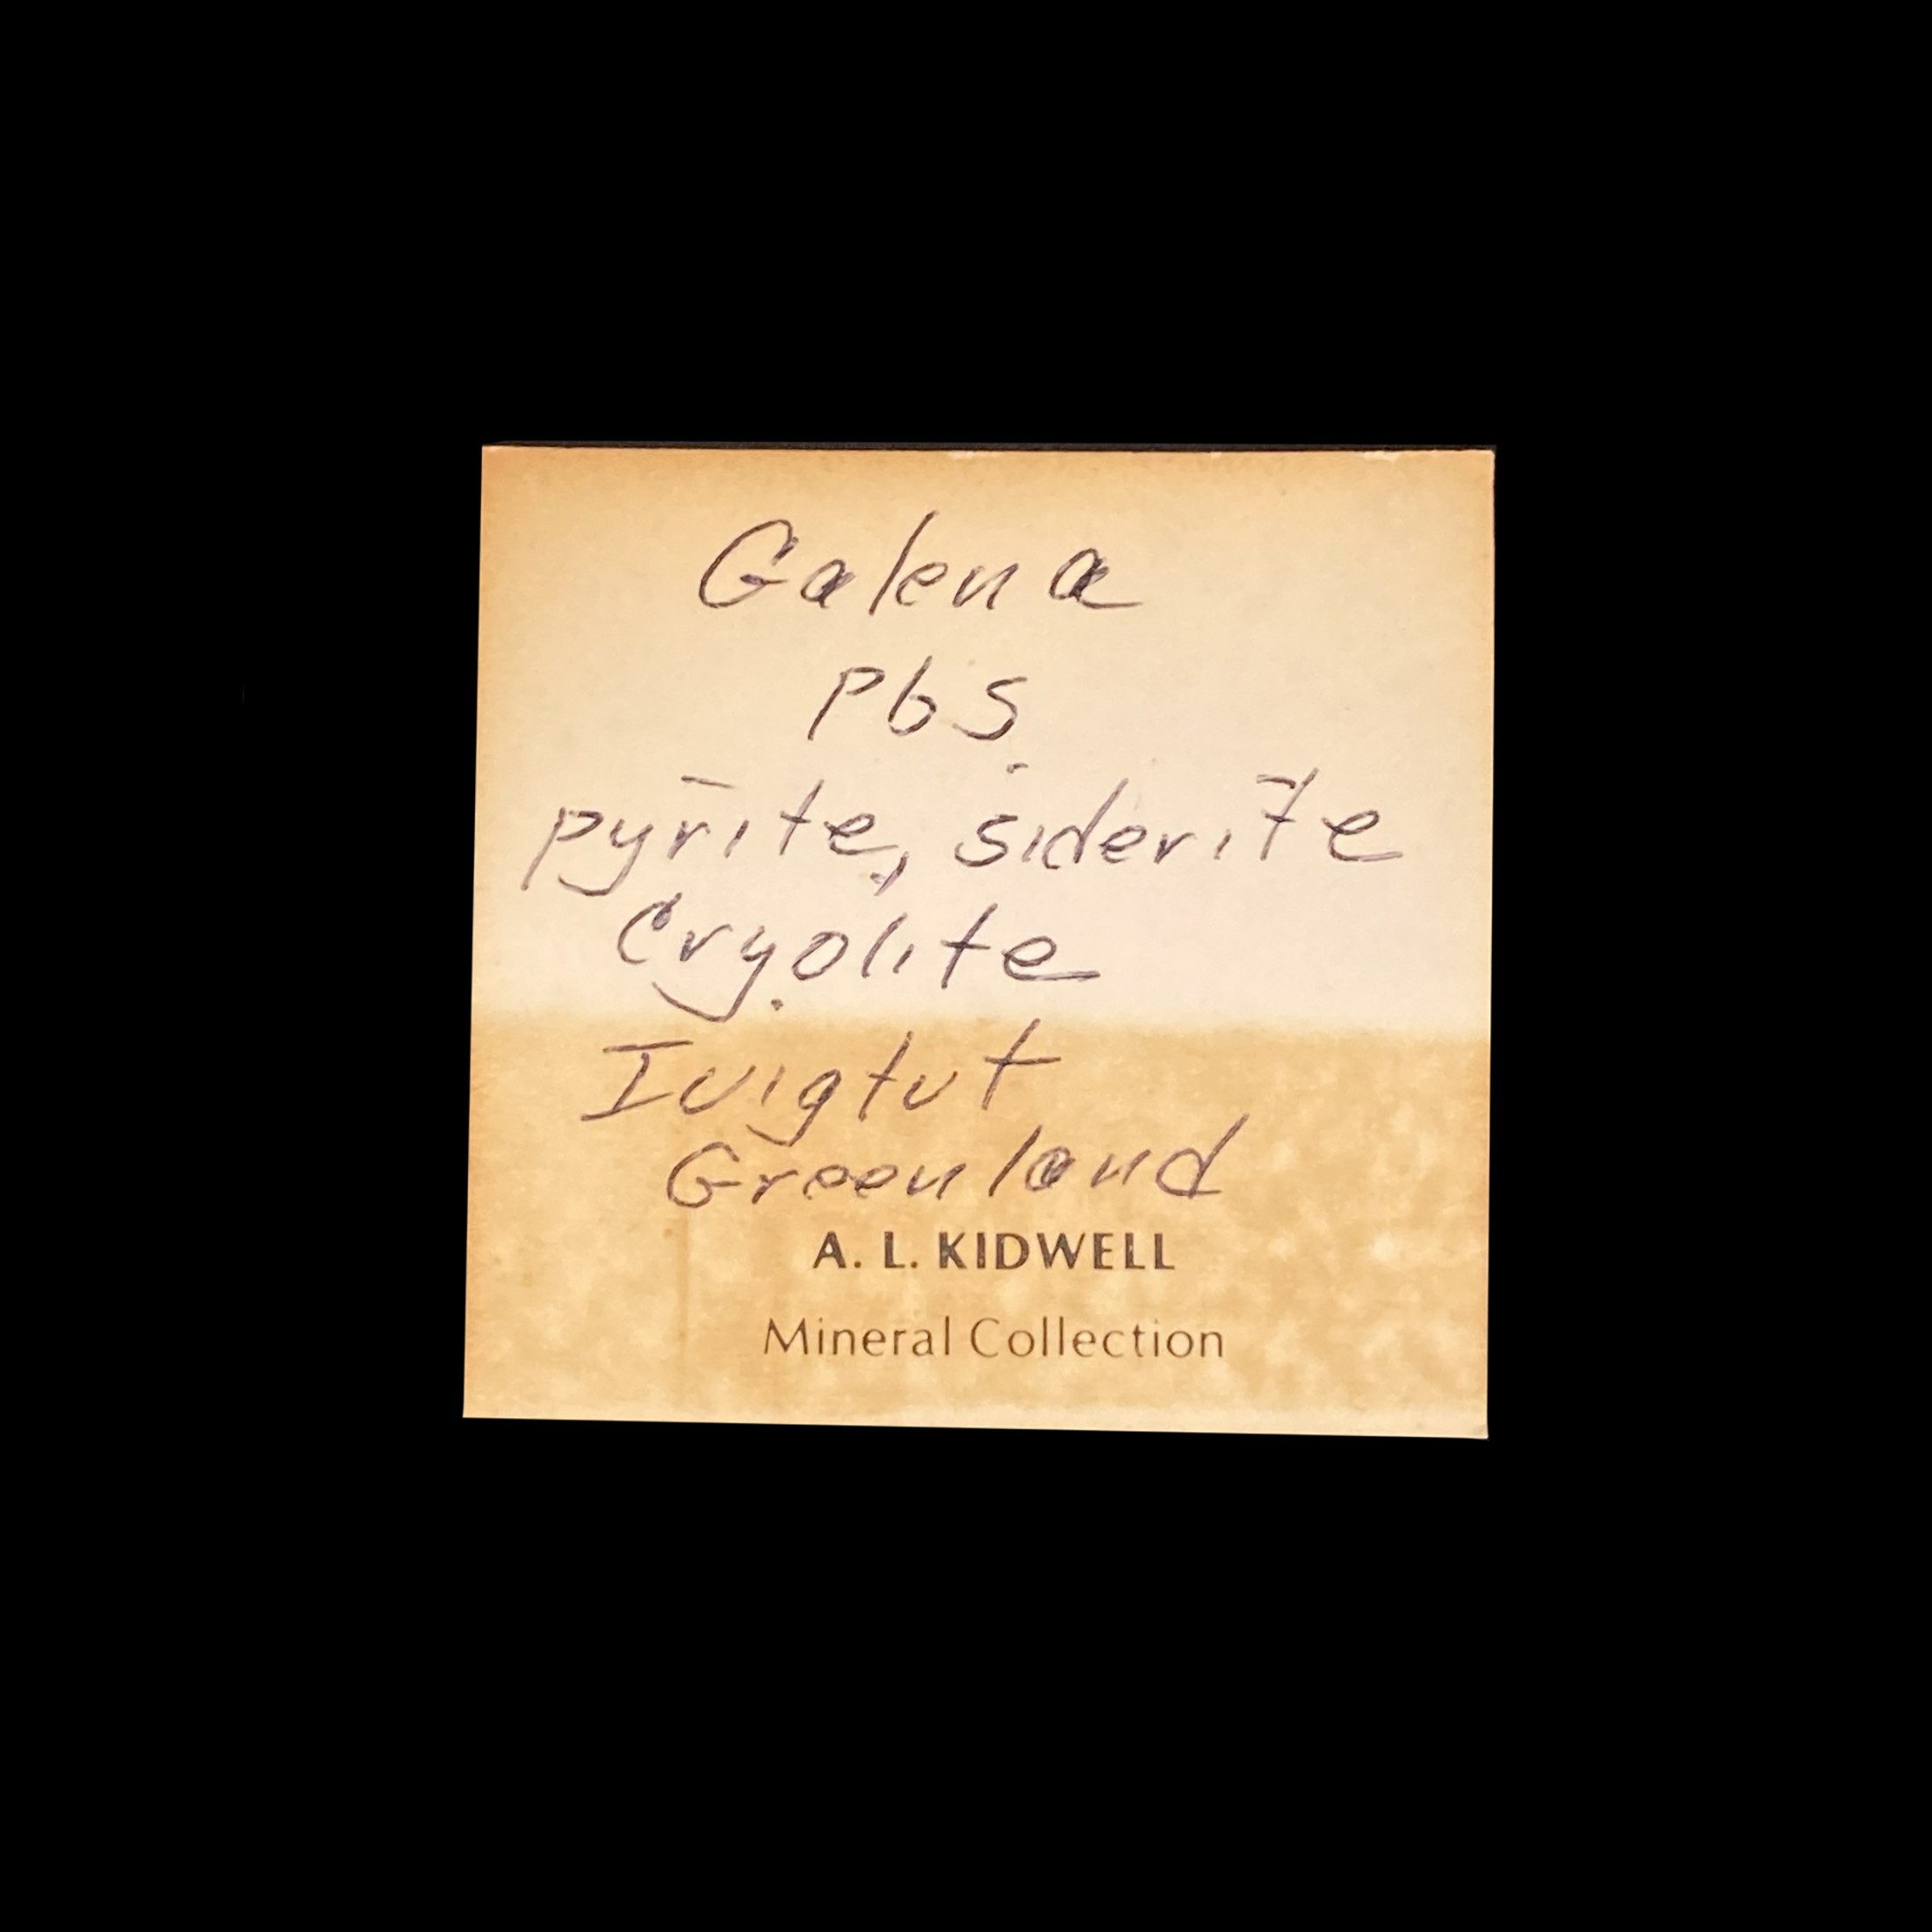 Galena
PbS
pyrite, siderite
Cryolite
Ivigtut
Greenland
A. L. KIDWELL
Mineral Collection